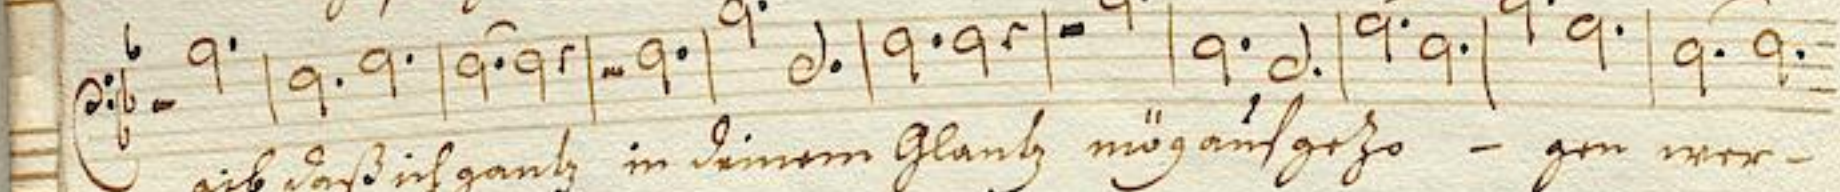 gib daß ich gantz in deinem Glantz mög aufgezo - gen wer-